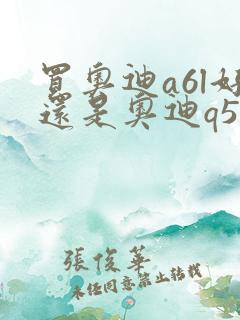 買奧迪a6l好
還是奧迪q5
張俊華
未經同意禁止轉載